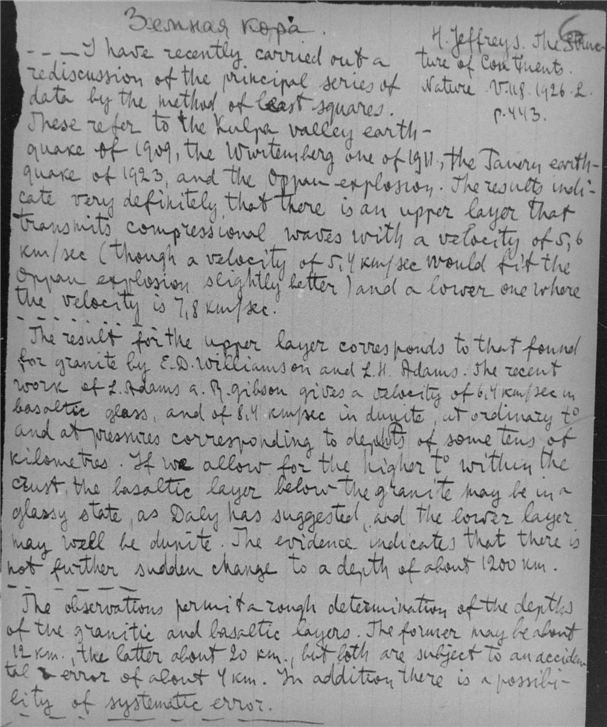 Земная кора.
H. Jeffreys. The Struc-
ture of Continents.
Nature. V. 118. 1926. 2.
p. 443.
6
- - - - I have recently carried out a
rediscussion of the principal series of
data by the method of least squares.
These refer to the Kulpa valley earth-
quake of 1909, the Wurtemberg one of 1911, the Tauern earth-
quake of 1923, and the Oppau explosion. The results indi-
cate very definitely that there is an upper layer that
transmits compressional waves with a velocity of 5,6
km/sec (though a velocity of 5,4 km/sec would fit the
Oppau explosion slightly better) and a lower one where
the velocity is 7,8 km/sec.
- - - - - - - - - -
The result for the upper layer corresponds to that found
for granite by E. D. Williamson and L. H. Adams. The recent
work of L. Adams a. R. gibson gives a velocity of 6,4 km/sec in
basaltic glass, and of 8,4 km/sec in dunite, at ordinary t°
and at pressures corresponding to depths of some tens of
kilometres. If we allow for the higher t° within the
crust, the basaltic layer below the granite may be in a
glassy state, as Daly has suggested, and the lower layer
may well be dunite. The evidence indicates that there is
not further sudden change to a depth of about 1200 km.
- - - - - - - -
The observations permit a rough determination of the depths
of the granitic and basaltic layers. The former may be about
12 km., the latter about 20 km., but both are subject to an acciden
tal error of about 4 km. In addition there is a possibi-
lity of systematic error.